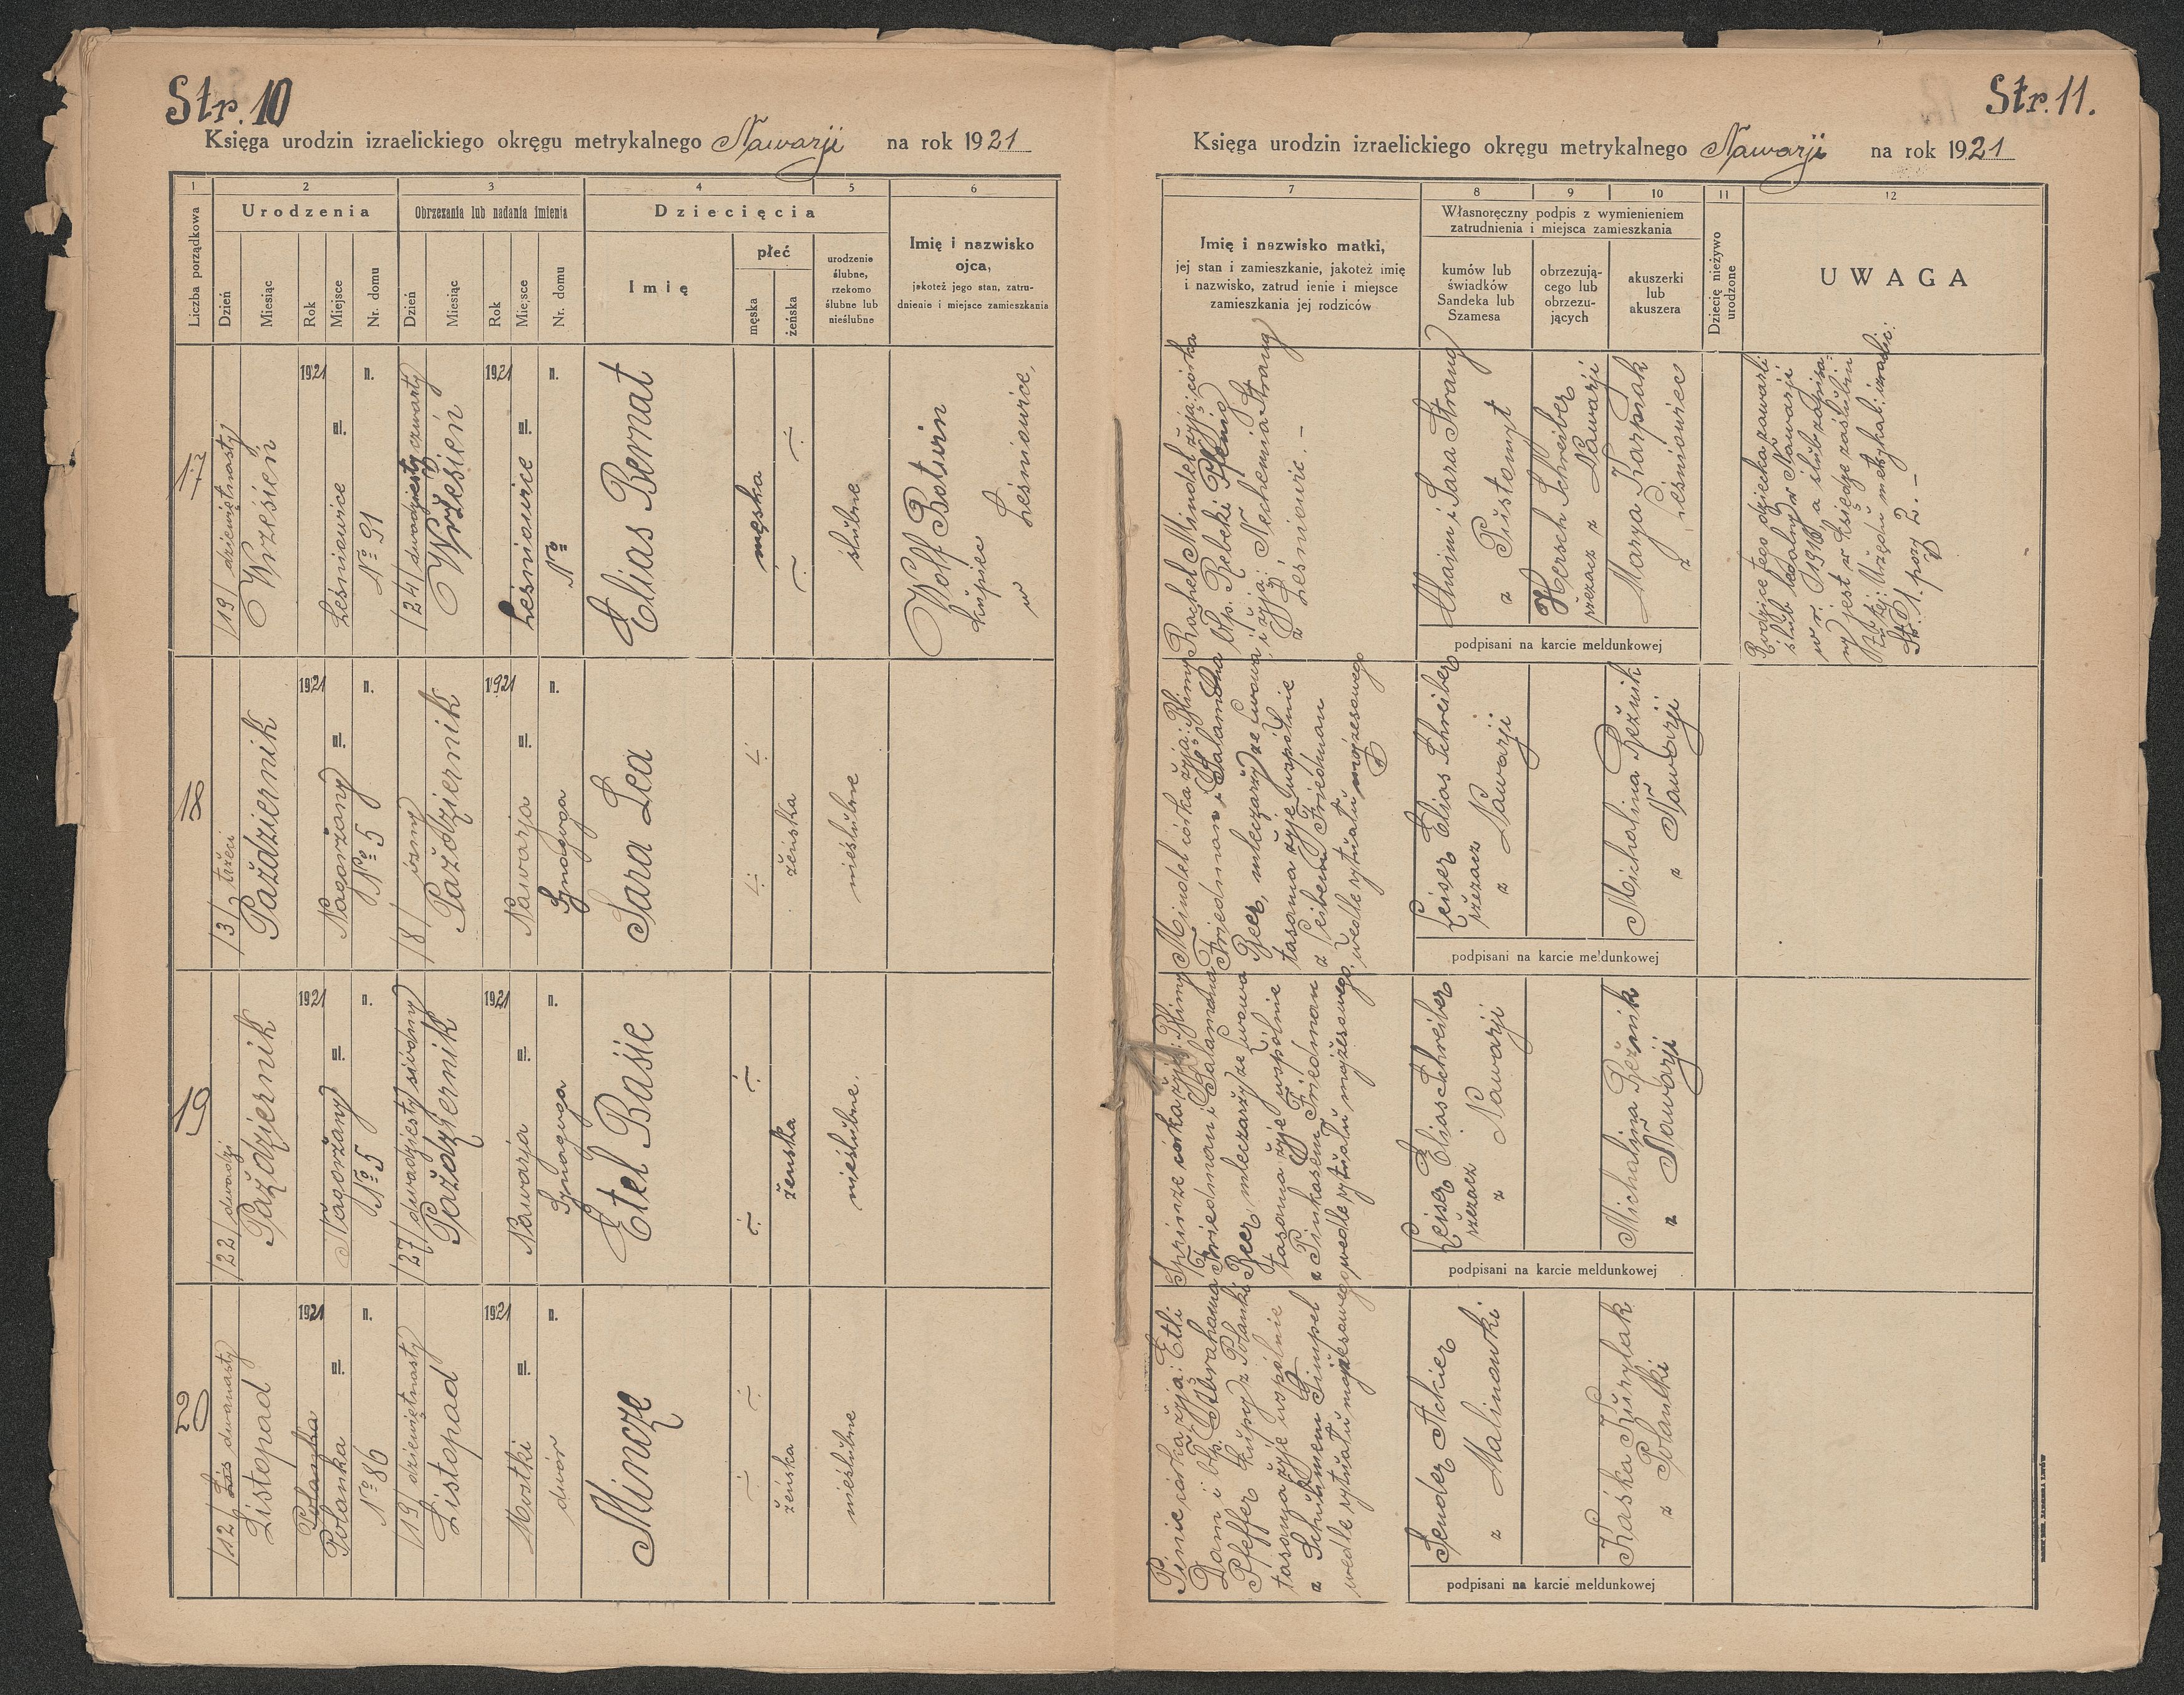 Str. 10
Księga urodzin izraelickiego okręgu metrykalnego Nawarji na rok 1921
1 2 3 4 5 6
Liczba porządkowa
Urodzenia
Obrzezania lub nadania imienia
Dziecięcia
Dzień
Miesiąc
Rok
Miejsce
Nr. domu
Dzień
Miesiąc
Rok
Miejsce
Nr. domu
Imię
płeć
męska
żeńska
urodzenie
ślubne,
rzekomo
ślubne lub
nieślubne
Imię i nazwisko
ojca,
jakoteż jego stan, zatru-
dnienie i miejsce zamieszkania
17
/19/ dziewiętnasty
Wrzesień
1921 n.
Leśniowice
No 91
/24/ dwadziesty czwarty
Wrzesień
1921 n.
Leśniowice
No =
Elias Bernat
męska
ślubne
Wolf Botwin
kupiec
w Leśniowice,
18
/3/ trzeci
Październik
1921 n.
Nagorzany
No 5
/8/ ósmy
Październik
1921 n.
Nawarja
Synagoga
Sara Lea
żeńska
nieślubne
19
/22/ dwadzi
Październik
1921 n.
Nagorzany
No 5
/27/ dwadziesty siódmy
Październik
1921 n.
Nawarja
Synagoga
Etel Basie
żeńska
nieślubne.
20
/12/ Lis dwanasty
Listopad
1921 n.
Polanka
Polanka
No 86
/19/ dziewiętnasty
Listopad
1921 n.
Mostki
dwór
Mincze
żeńska
nieślubne
Str. 11.
Księga urodzin izraelickiego okręgu metrykalnego Nawarji na rok 1921
7 8 9 10 11 12
Imię i nazwisko matki,
jej stan i zamieszkanie, jakoteż imię
i nazwisko, zatrud ienie i miejsce
zamieszkania jej rodziców
Własnoręczny podpis z wymienieniem
zatrudnienia i miejsca zamieszkania
kumów lub
świadków
Sandeka lub
Szamesa
obrzezują-
cego lub
obrzezu-
jących
akuszerki
lub
akuszera
Dziecię nieżywo
urodzone
UWAGA
Rachel Mindel żyją: córka
bp. Rebeki
i żyją: Nechemia Strang
z Leśniowic. -
Chaim i Sara Strang
z Pustomyt
Hersch Schreiber
rzezacz z Nawarji
Marya Karpiak
z Leśniowiec
podpisani na karcie meldunkowej
Rodzice tego dziecka zawarli
ślub legalny w Nawarji
w r. 1916 a ślub zapisa-
ny jest w Księdze zaślubin
tutej: Urzędu metrykal: izraelic:
St. 1. pozy 2. -
Mindel córka żyją: Blimy
Friedman i Salamona
Beer, mleczarzy ze Lwowa
taosoma żyje wspólnie
z Leibem Friedman
wedle rytuału mojżesowego
Leiser Elias Schreiber
rzezacz
z Nawarji
Michalina Reźnik
z Nawarji
podpisani na karcie meldunkowej
Sprinze córka żyją: Blimy
Friedman i Salamona
Beer, mleczarzy ze Lwowa
żyje wspólnie
z Pinkasem Friedman
wedle rytuału mojżesowego
Leiser Elias Schreiber
rzezacz
z Nawarji
Michalina Reźnik
z Nawarji
podpisani na karcie meldunkowej
Pinie córka żyją: Etli
Dam i bp. Abrahama
Pfeffer kupcy z Polanki
żyje wspólnie
z Schulimem Gimpel
wedle rytuału mojżesowego
Sender Acker
z Malinowki
Kaśka Kurylak
z Polanki
podpisani na karcie meldunkowej